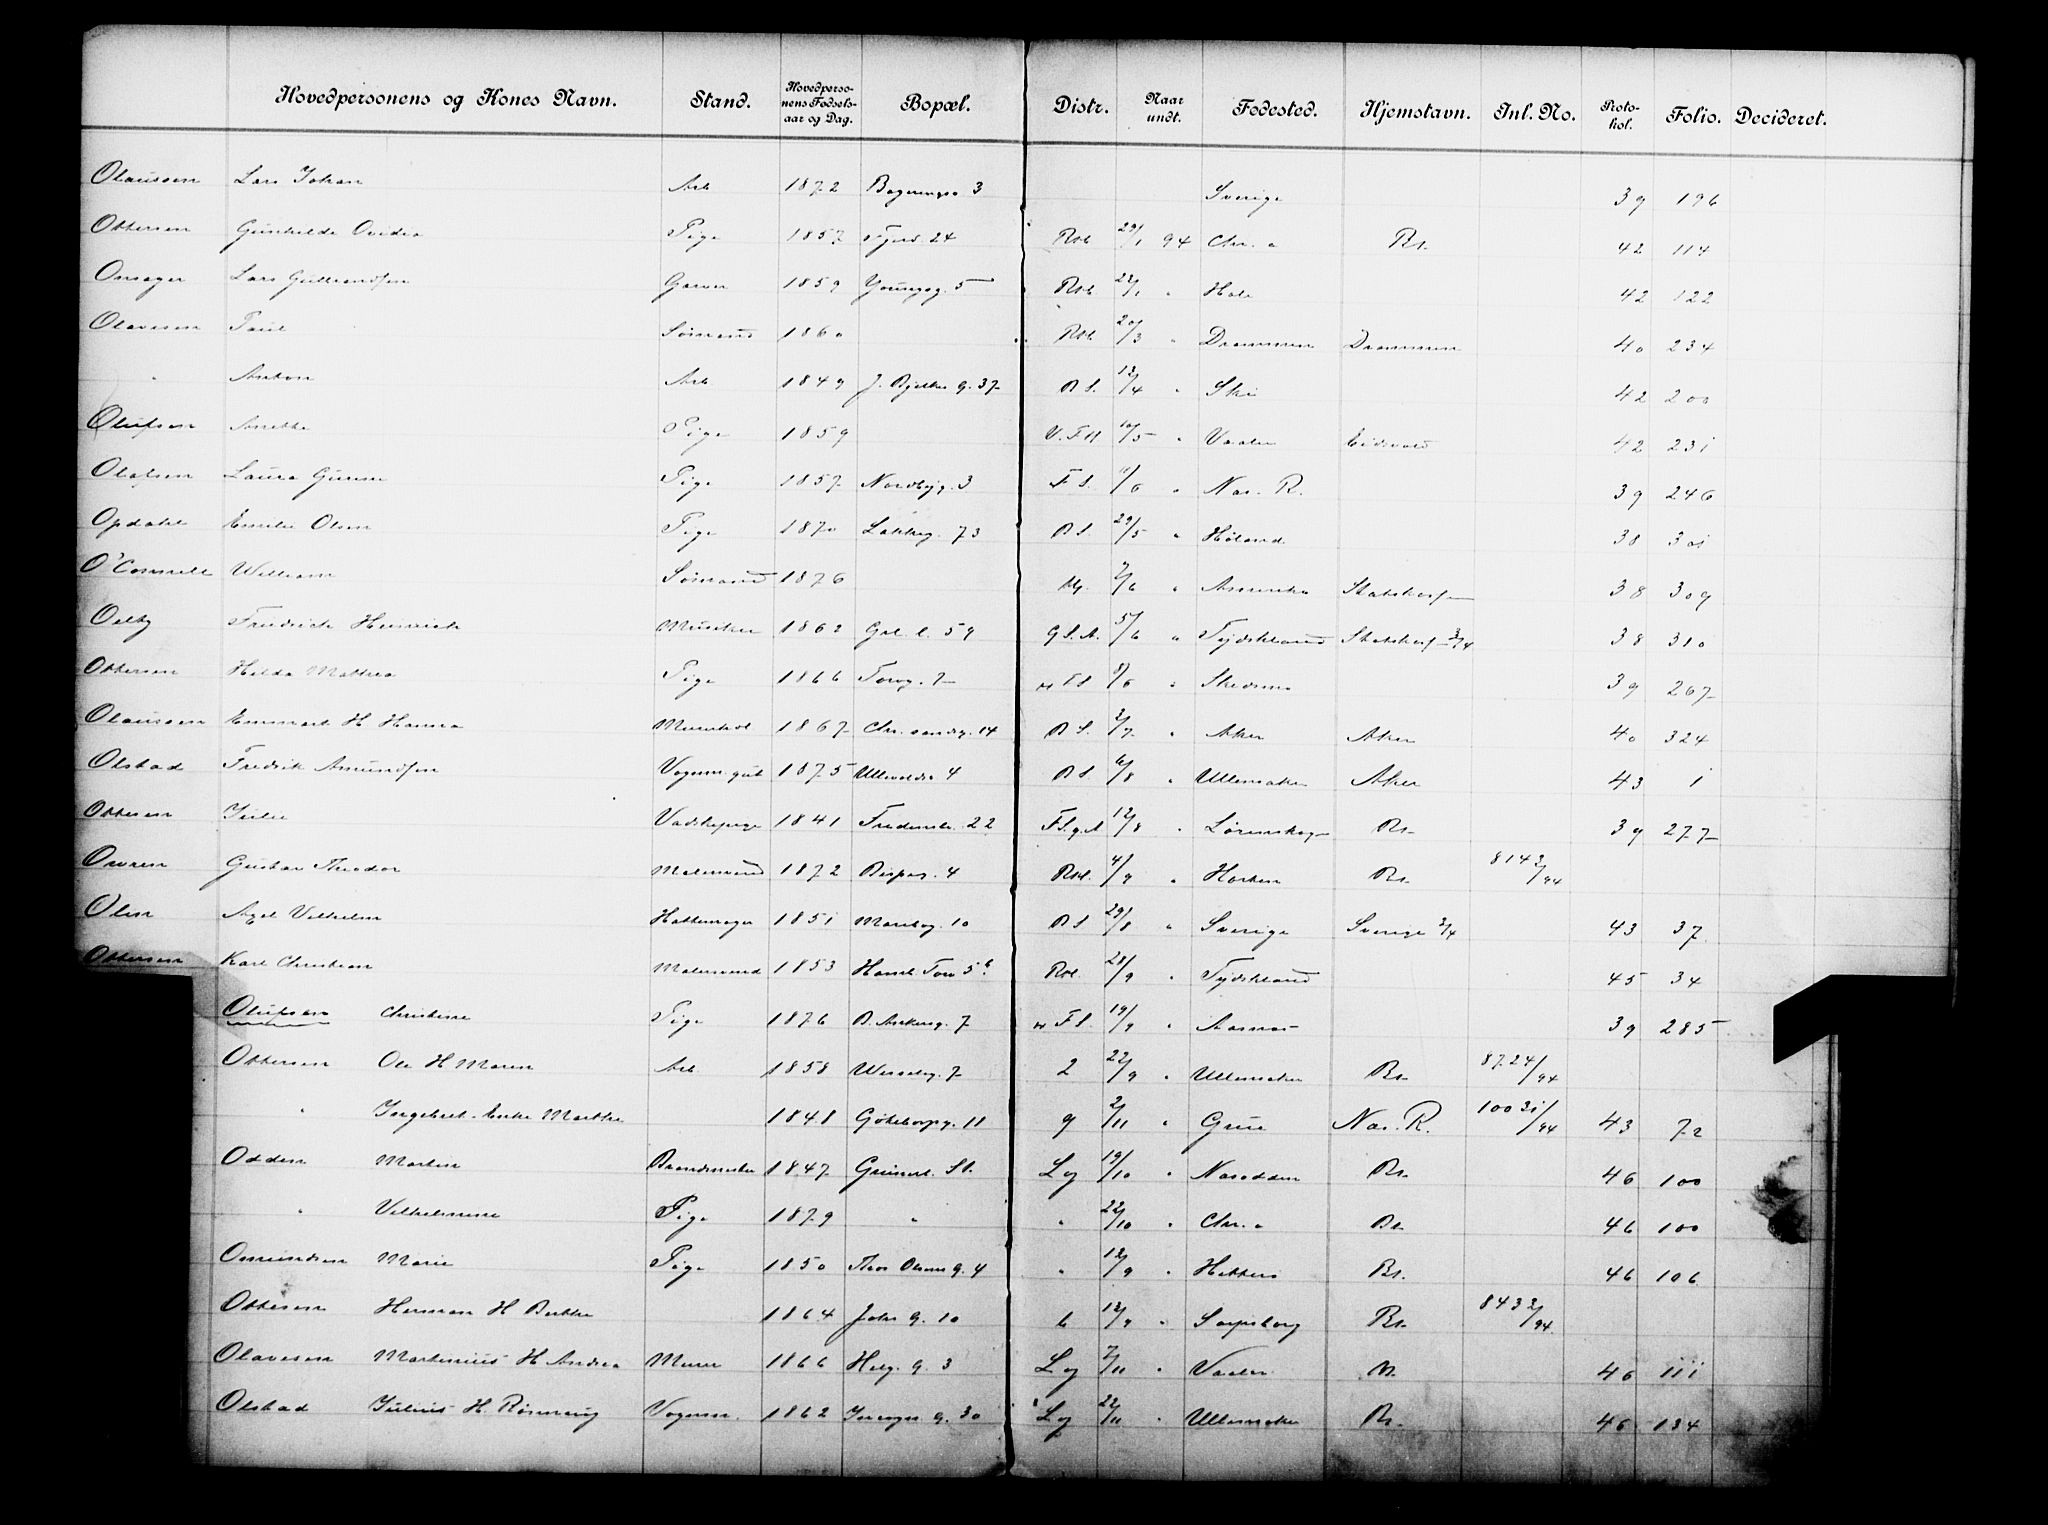 Hovedpersonens og Kones Navn. Stand. Hovedpersonens Fødselsaar og Dag. Bopæl. Distr. Naar undt. Fødested. Hjemstavn. Inl. No. Protokol. Folio. Decideret.
Olaussen Lars Johan Arb 1872 3 Sverige 39 196
Ottersen Gunhilde Ovidia Pige 1857 Fjerd. 24 Rst. 29/1 94 Chr.a Bs. 42 114
Onsager Lars Gulbrandsen Garver 1859 Youngsg. 5 Rst. 22/1 " Hole 42 122
Olavesen Paul Sømand 1860 Rst. 20/3 " Drammen Drammen 40 234
" Anton Arb 1849 J. Bjelkes g. 37 B S. 12/4 " Ski 42 200
Olufsen Anette Pige 1859 V. F H 10/5 " Vaaler Eidsvold 42 231
Olafsen Laura Gurine Pige 1857 Nordbyg. 3 F S. 11/6 " Nas. R. 39 246
Opdahl Emilie Olsen Pige 1870 Lakkeg. 73 B S. 29/5 " Høland 38 301
O'Connell William Sømand 1876 7/6 " Amerika Statskasse 38 309
Oelby Friedrich Heinrich Musiker 1862 Grl. l. 59 G S. A. 5/6 " Tydskland Statskasse 3/4 38 310
Ottersen Hilda Mathea Pige 1866 Torvg. 7 F S 8/6 " Skedsmo 39 267
Olaussen Emmart H Hanna Murerhdl 1867 Chr. sandsg. 14 B S. 2/7 " Aker Aker 40 324
Olstad Fredrik Amundsen Vognm. gut 1875 Ullevoldsv 4 B S. 6/8 " Ullensaker Aker 43 1
Ottesen Julie Vadskepige 1841 Fredensb. 22 F S. g. A 12/8 " Lørenskog Bs. 39 277
Owren Gustav Theodor Malersvend 1872 Bispeg. 4 Rst. 4/9 " Horten Bs. 8142/94
Olin Axel Vilhelm Hattemager 1851 Maribog. 10 B S 29/8 " Sverige Sverige 3/4 43 37
Ottersen Karl Christian Malersvend 1853 Haml. Torv 5 b Rst. 28/9 " Tydskland 45 34
Olufsen Christine Pige 1876 B. Ankersg. 7 F S. 19/9 " Aasnæs 39 285
Ottersen Ole H Maren Arb. 1858 Wesselsg. 7 2 22/9 " Ullensaker Bs. 8724/94
" Ingebret Enke Marthe 1848 Gøteborgg. 11 9 2/11 " Grue Nas. R. 10031/94 43 72
Odden Martin Brandmester 1847 Grünerl. St. L g 19/10 " Næsodden Bs. 46 100
" Vilhelmine Pige 1879 " " 22/10 " Chr.a Bs. 46 100
Osmundsen Marie Pige 1850 Thor Olsens g. 4 " 12/9 " Hitterø Bs. 46 106
Ottesen Herman H Berthe 1864 Johs g. 10 6 12/9 " Sarpsborg Bs. 8432/94
Olavesen Martinius H Andrea Murer 1866 Helg. g. 3 L g 7/11 " Vaaler Bs. 46 111
Olstad Julius H. Rønnaug Vognm. 1862 g. 30 L g 22/11 " Ullensaker Bs. 46 134